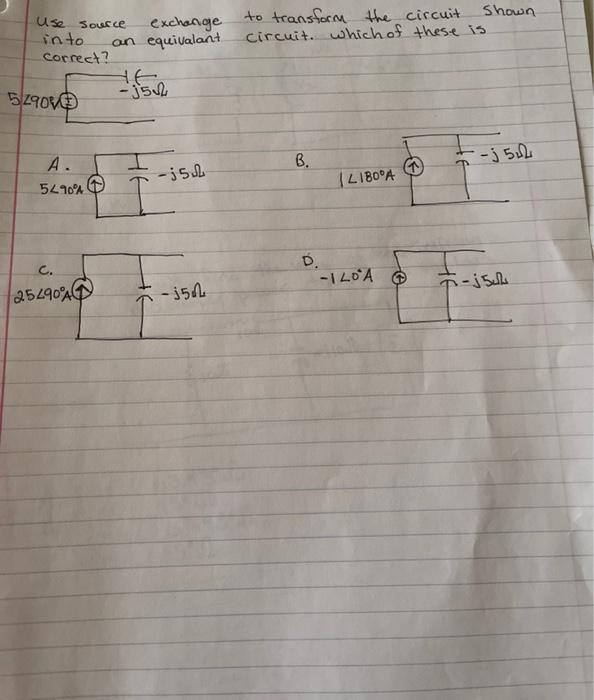 Use source exchange to transform the circuit shown
into an equivalant circuit. which of these is
correct?
5∠90°V
-j5Ω
A.
5∠90°A
-j5Ω
B.
1∠180°A
-j5Ω
C.
25∠90°A
-j5Ω
D.
-1∠0°A
-j5Ω